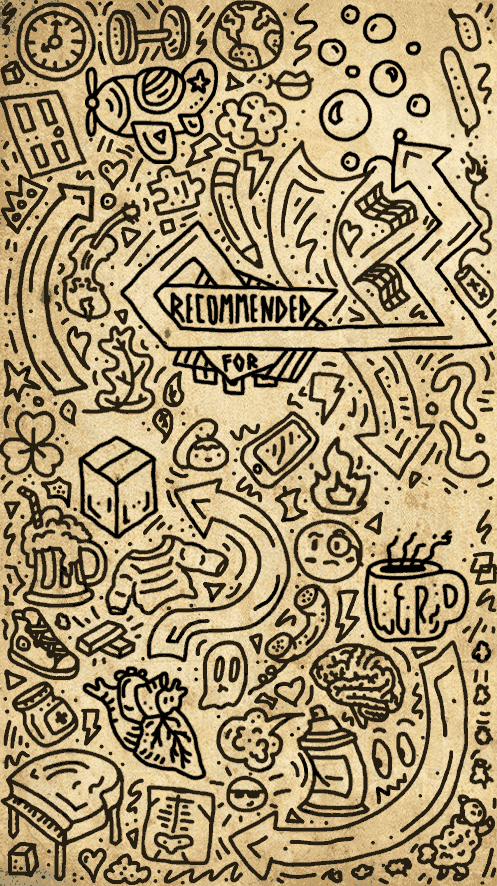 RECOMMENDED
FOR
WERD